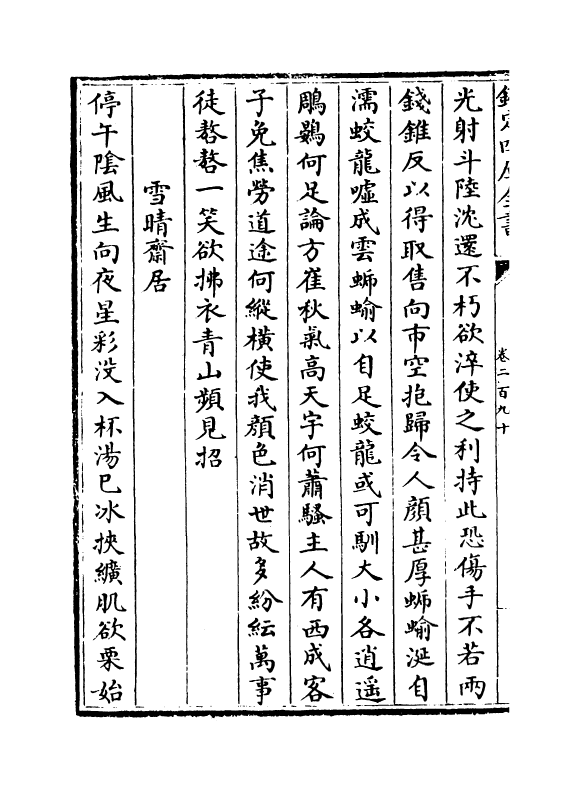 欽定四庫全書
卷二百九十
光射斗陸沈還不朽欲淬使之利持此恐傷手不若兩
錢錐反以得取售向市空抱歸令人顔甚厚蝂蝓涎自
濡蛟龍嘘成雲蝂蝓以自足蛟龍或可馴大小各逍遥
鵰鷃何足論方萑秋氣高天宇何蕭騷主人有西成客
子免焦勞道途何縱横使我顔色消世故多紛紜萬事
徒嗸嗸一笑欲拂衣青山頻見招
雪晴齋居
停午陰風生向夜星彩没入杯湯已冰挾纊肌欲粟始